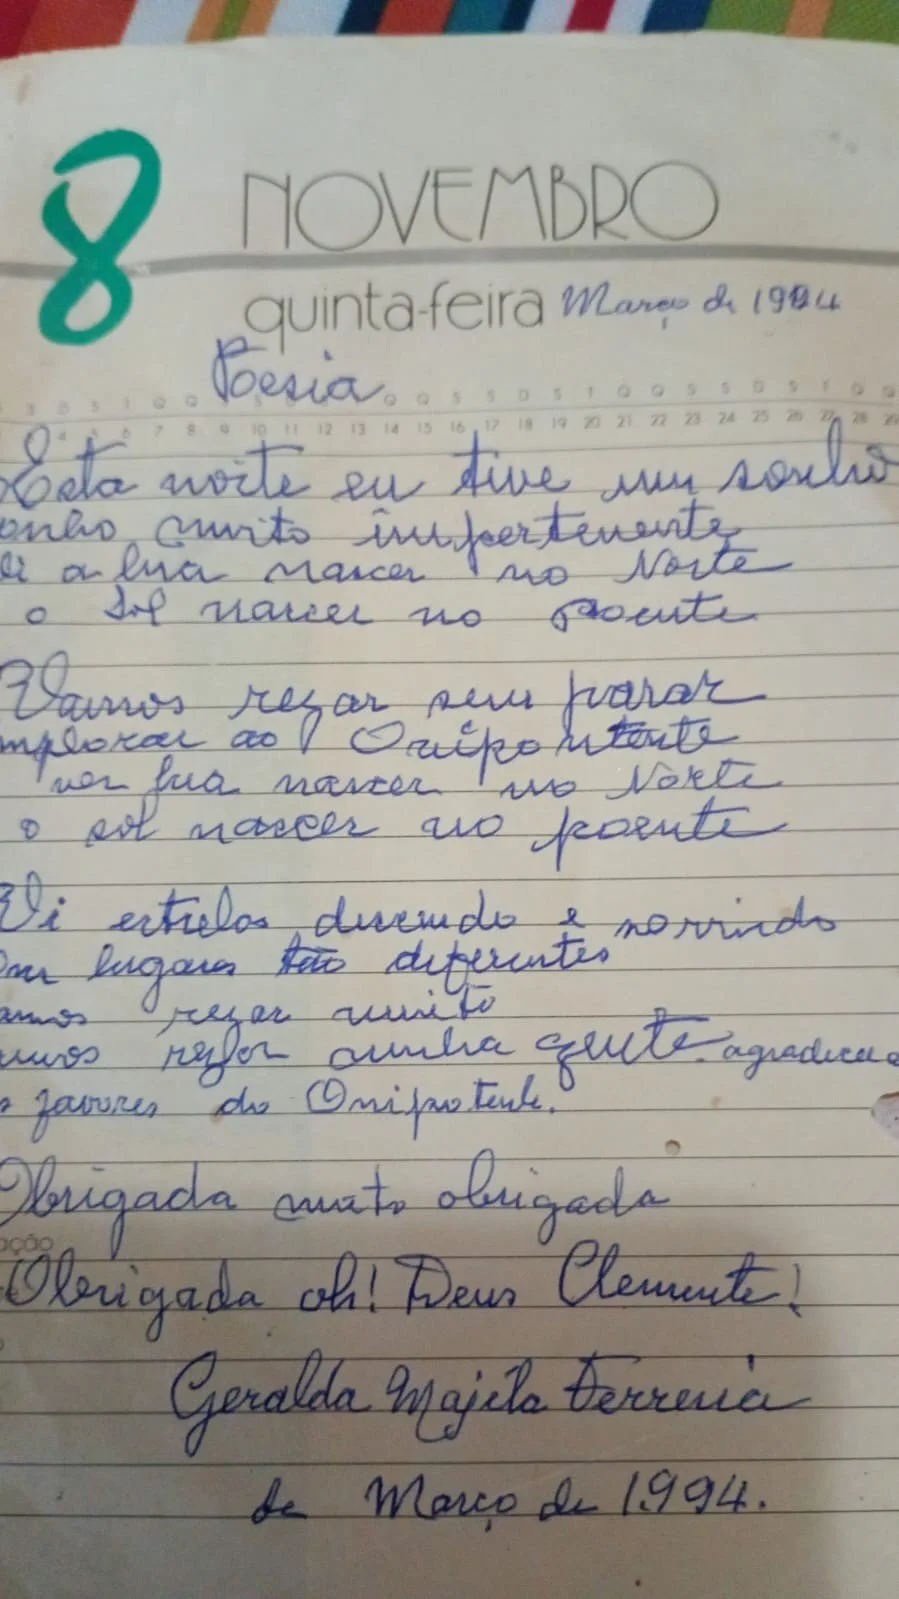 8 NOVEMBRO
quinta-feira Março de 1994
Poesia
S D S T Q Q S S D S T Q Q S S D S T Q Q
4 5 6 7 8 9 10 11 12 13 14 15 16 17 18 19 20 21 22 23 24 25 26 27 28 29
Esta noite eu tive um sonho
onho muito impertenente
a lua nascer no Norte
o Sol nascer no poente
Vamos rezar sem parar
mplorar ao Onipontente
ver lua nascer no Norte
o sol nascer no poente
Vi estrelas descendo e sorrindo
Em lugares tão diferentes
amos rezar muito
amos rezar minha gente agradecer
s favores do Onipotente.
Obrigada muito obrigada
ação
Obrigada oh! Deus Clemente!
Geralda Majela Ferreira
de Março de 1994.